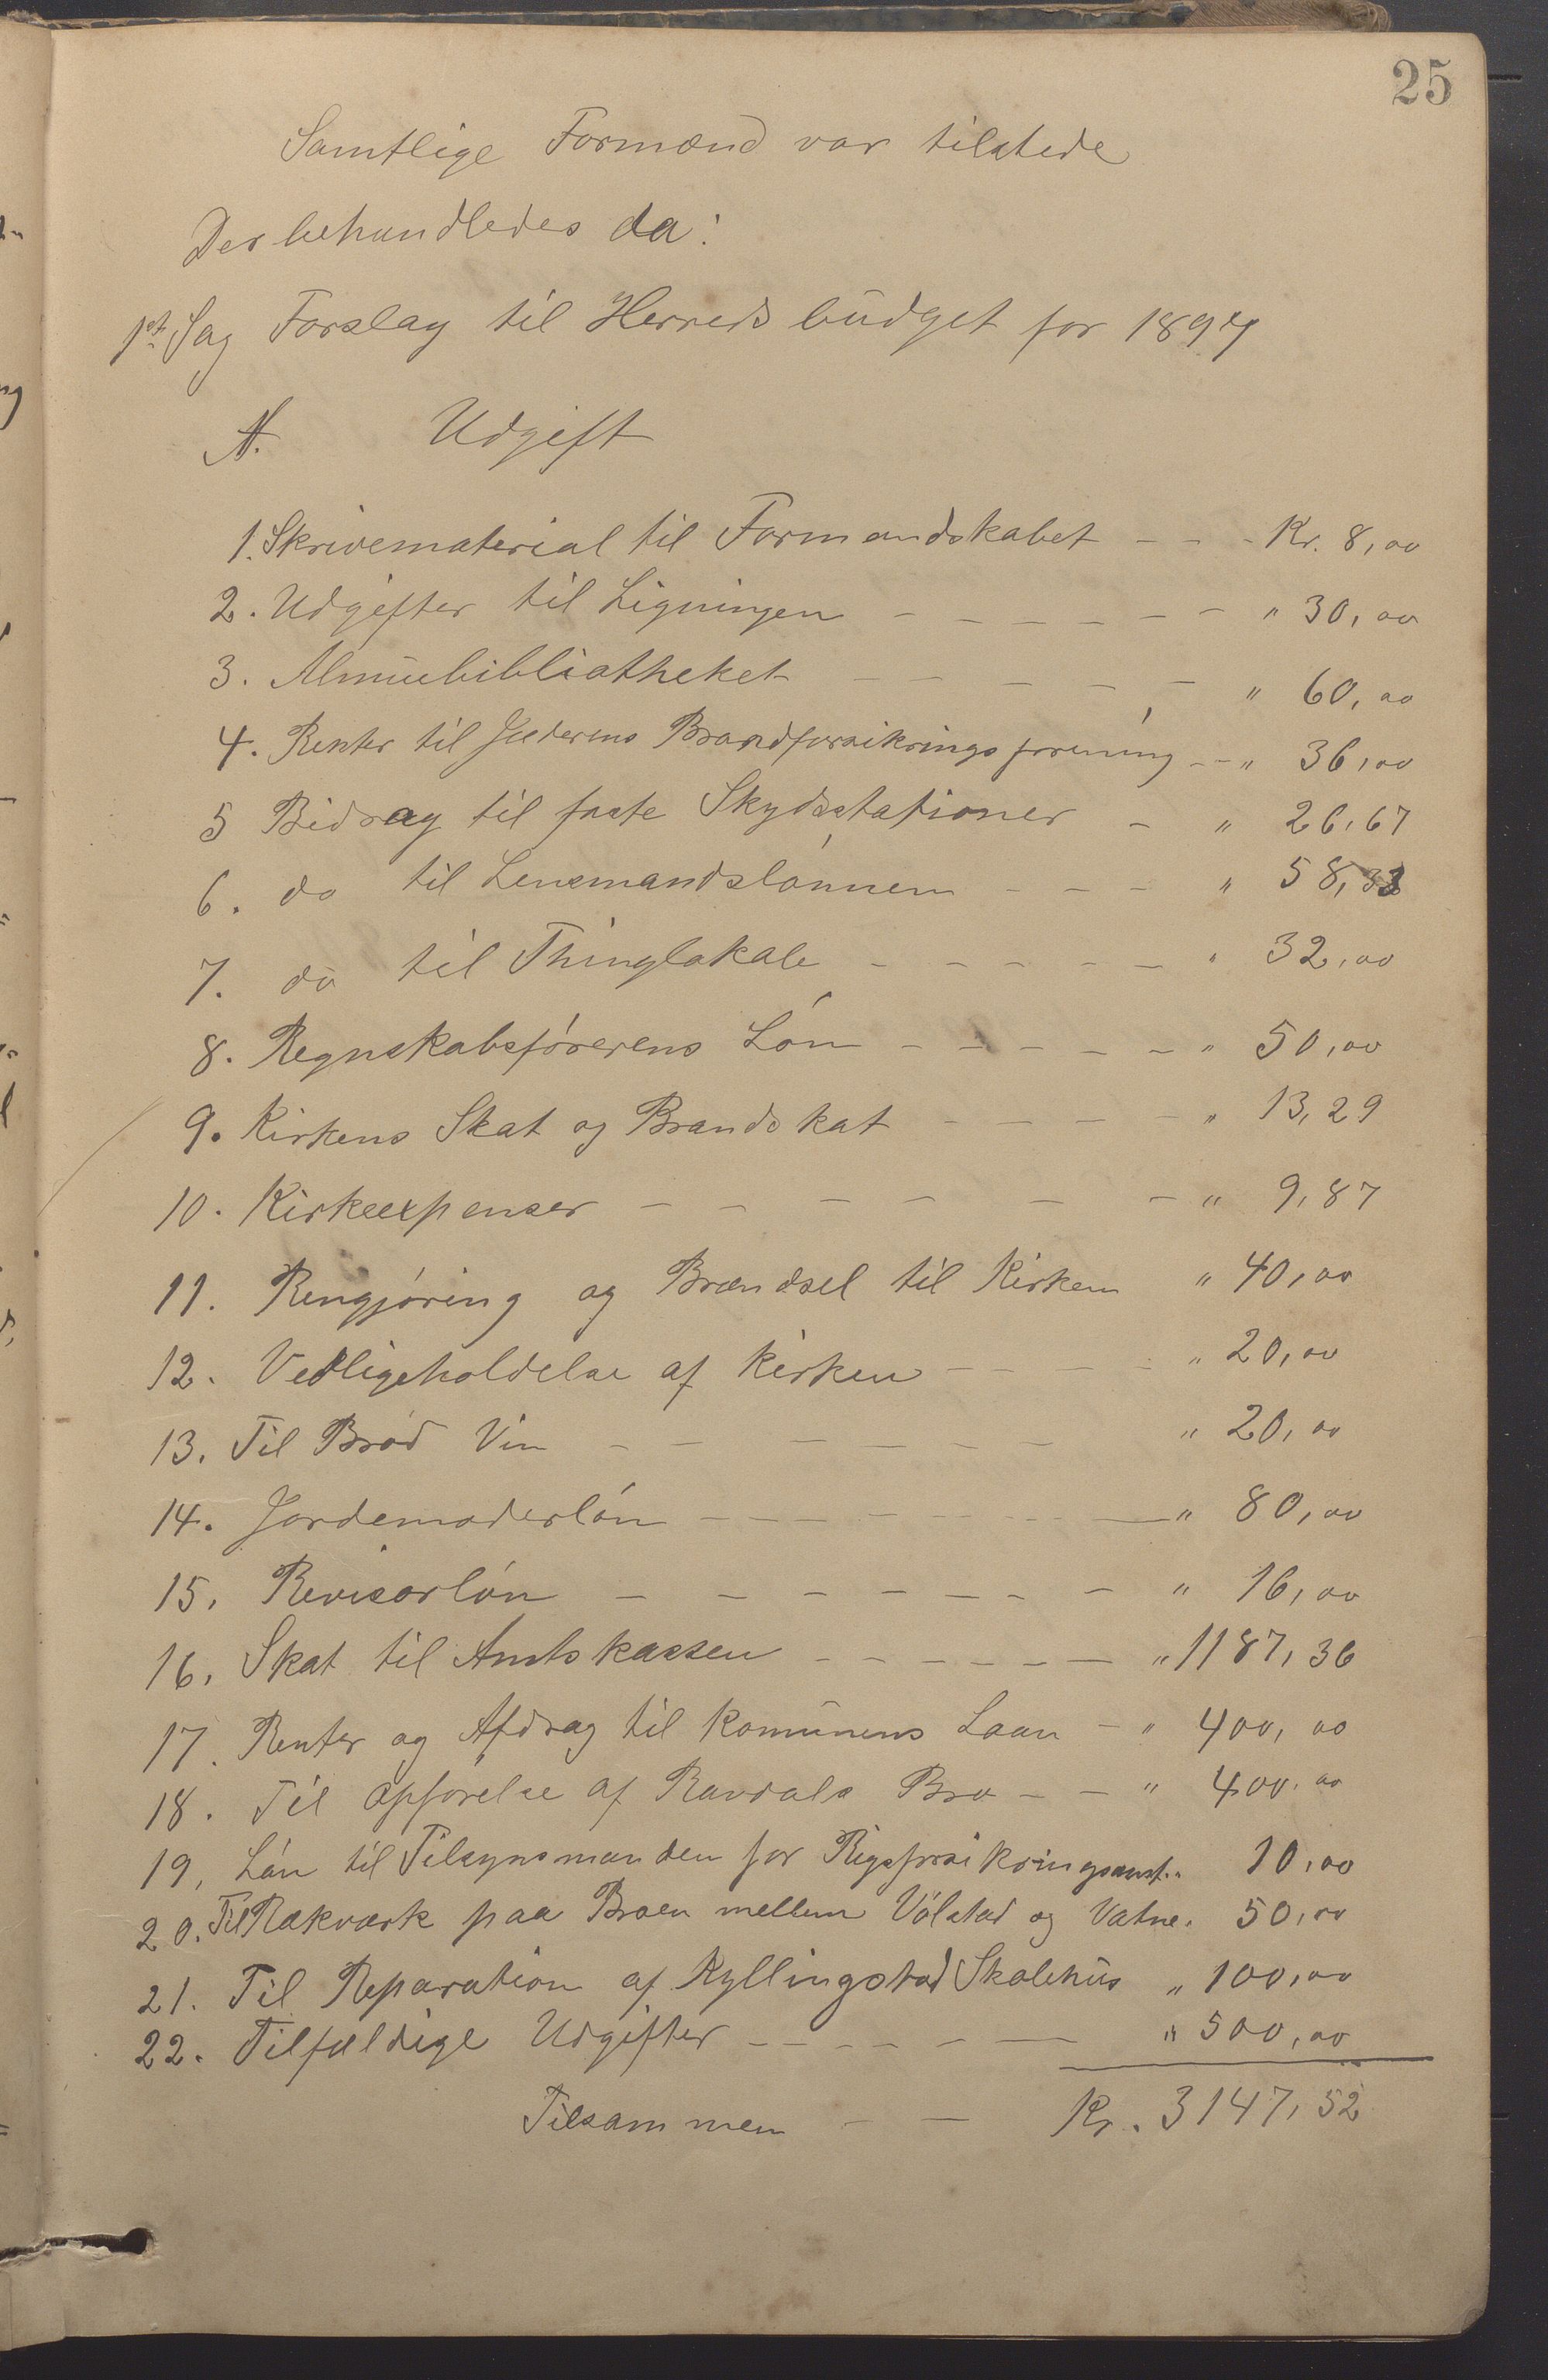 25
Samtlige Formænd var tilstede
Der behandledes da:
1st Sag Forslag til Herredsbudget for 1897
A. Udgift
1. Skrivematerial til Formandskabet - - - Kr. 8,00
2. Udgifter til Ligningen - - - - - - - " 30,00
3. Almuebibliotheket - - - - - " 60,00
4. Renter til Jæderens Brandforsikringsforening - - " 36,00
5 Bidrag til faste Skydsstationer - " 26,67
6. do til Lensmandslønnen - - - " 58,33
7. do til Thinglokale - - - - - " 32,00
8. Regnskabsførerens Løn - - - - - " 50,00
9. Kirkens Skat og Brandskat - - - - " 13,29
10. Kirkeexpenser - - - - - - " 9,87
11. Rengjøring og Brændsel til Kirken " 40,00
12. Vedligeholdelse af Kirken - - - - " 20,00
13. Til Brød Vin - - - - - - " 20,00
14. Jordemoderløn - - - - - - - - " 80,00
15. Revisorløn - - - - - - - " 16,00
16. Skat til Amtskassen - - - - - - " 1187,36
17. Renter og Afdrag til Komunens Laan - " 400,00
18. Til Opførelse af Ravdals Bro - - " 400,00
19, Løn til Tilsynsmanden for Rigsforsikringsanst. " 10,00
20. Til Rækværk paa Broen mellem Vølstad og Vatne. 50,00
21. Til Reparation af Kyllingstad Skolehus " 100,00
22. Tilfældige Udgifter - - - - - " 500,00
Tilsammen - - Kr. 3147,52